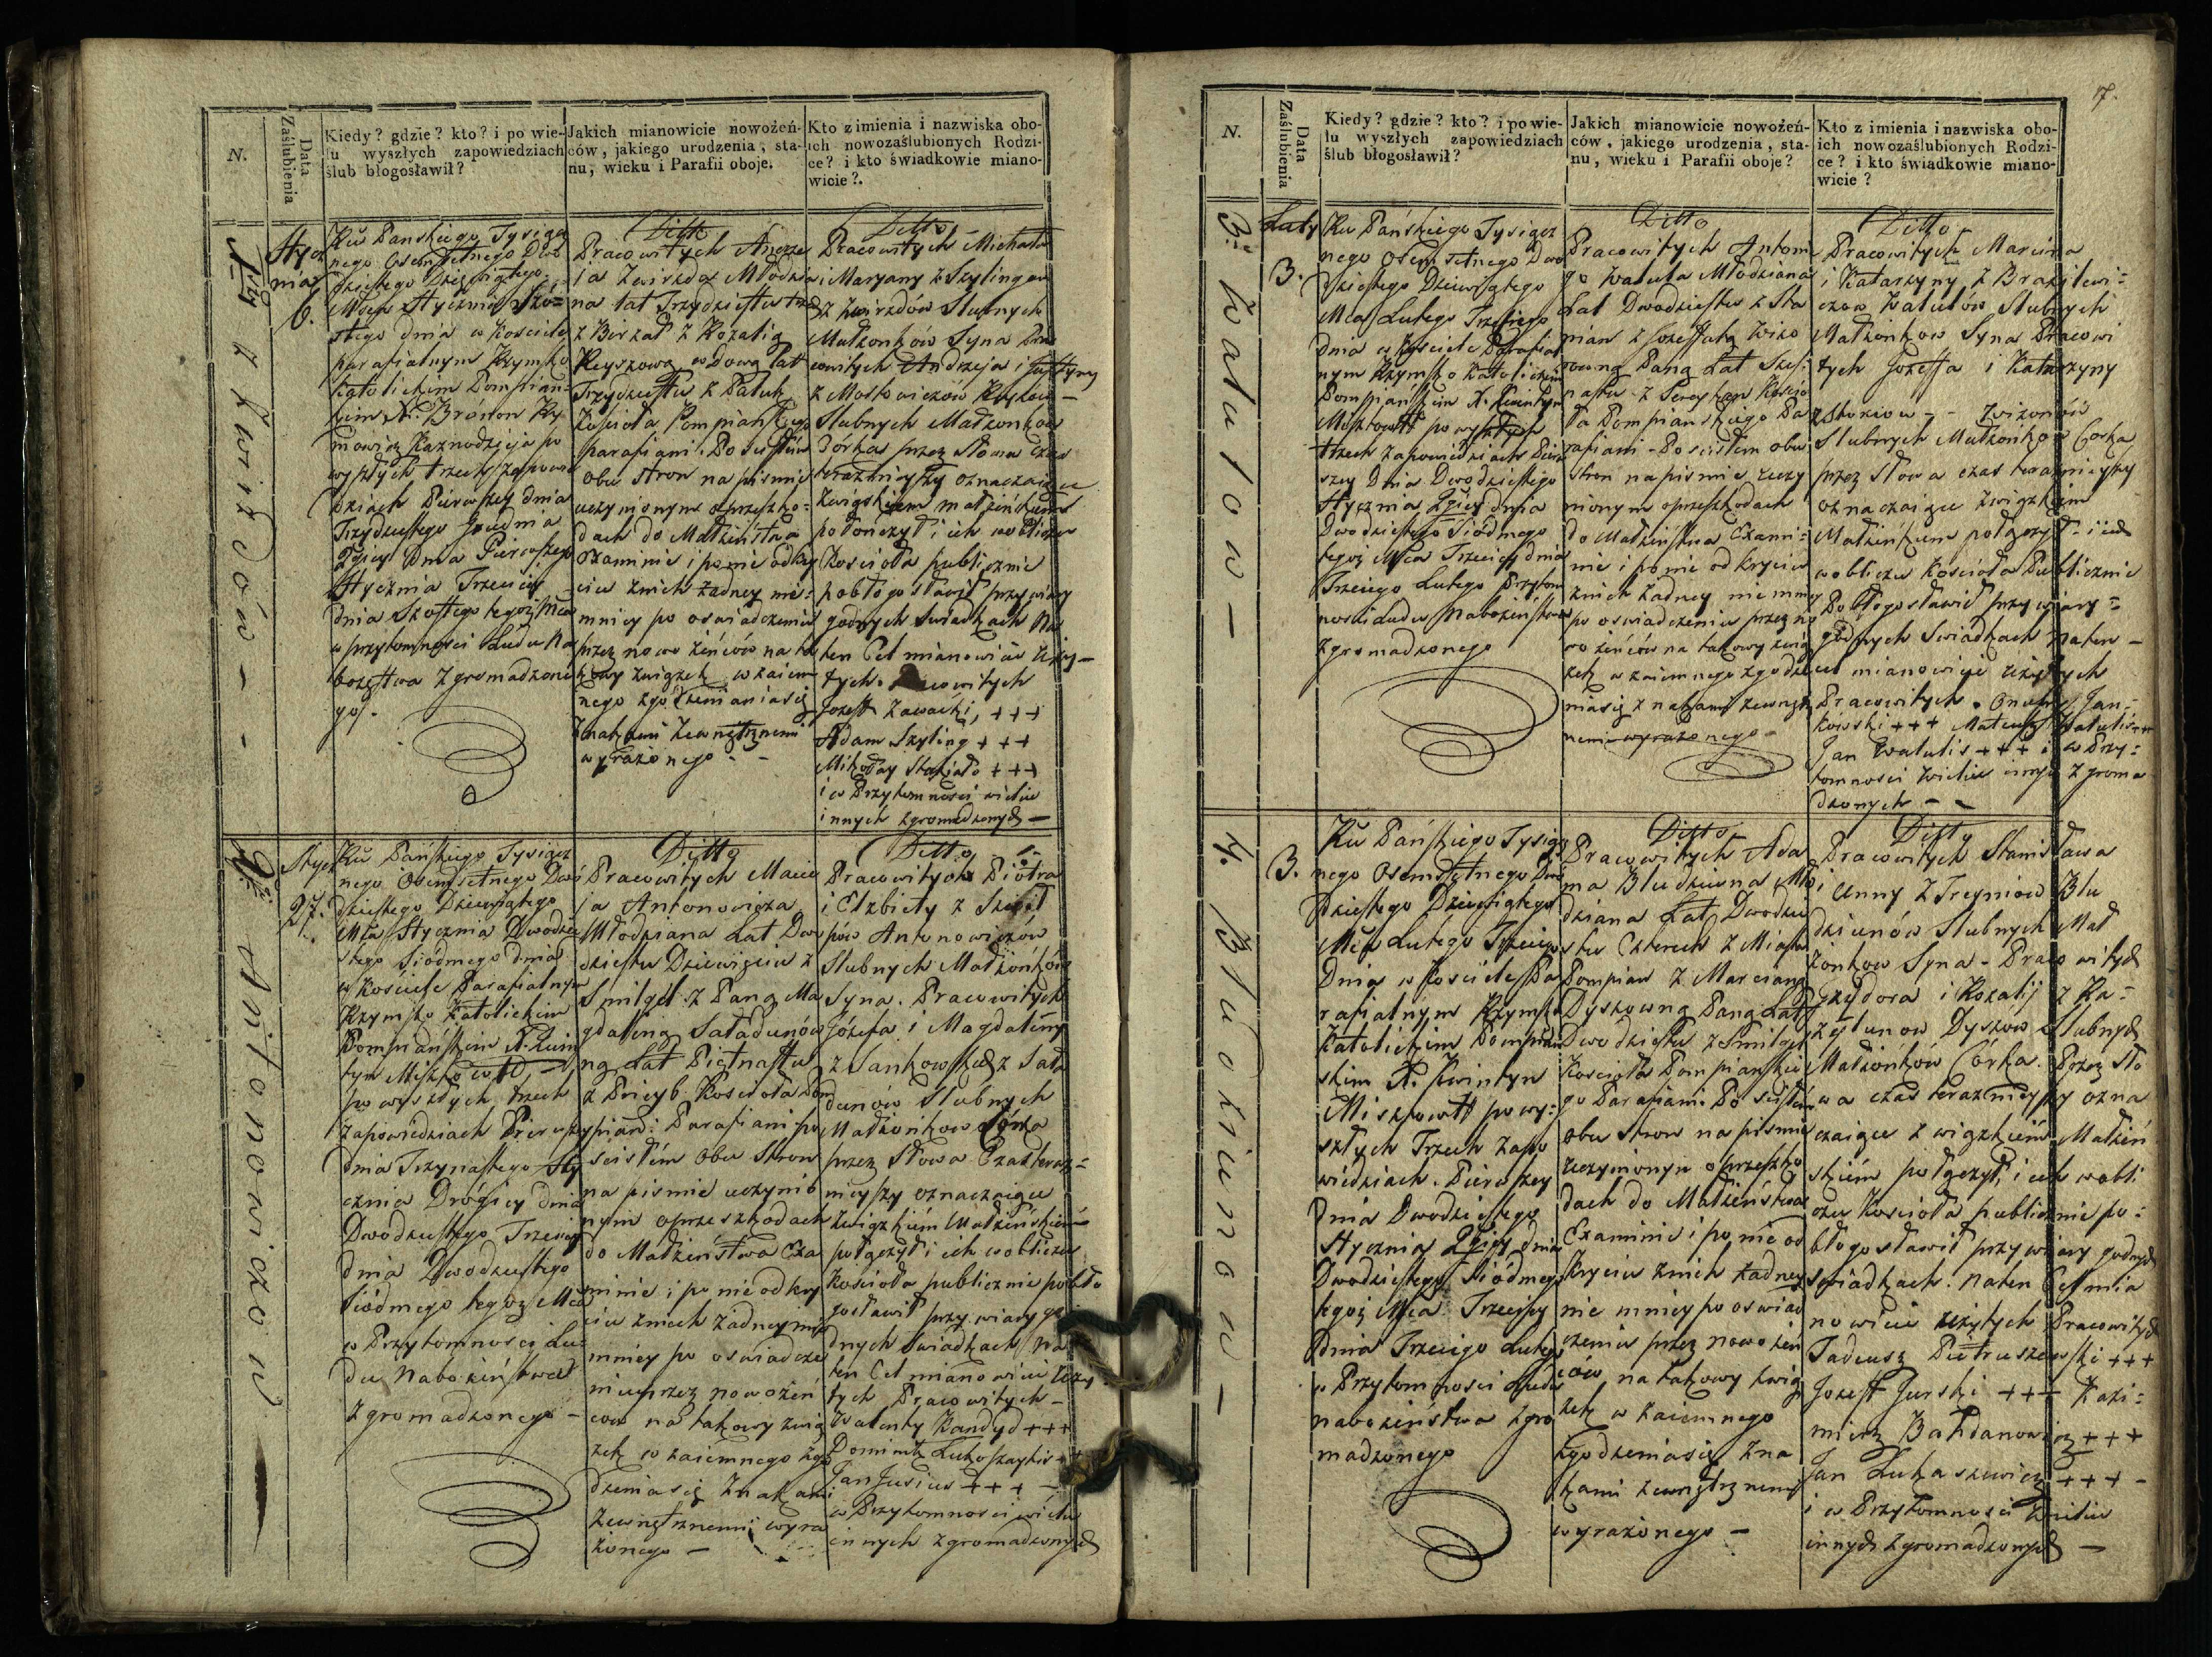 N.
Data
Zaślubienia
Kiedy? gdzie? kto? i po wie-
lu wyszłych zapowiedziach
ślub błogosławił?
Jakich mianowicie nowożeń-
ców, jakiego urodzenia, sta-
nu, wieku i Parafii oboje.
Kto z imienia i nazwiska obo-
ich nowozaślubionych Rodzi-
ce? i kto świadkowie miano-
wicie?.
Zwirzdów
Stycz
nia
6.
Ru Panskiego Tysiącz
nego Osemsetnego Dwo
dziestego Dziewiątego
Mca Stycznia Szó=
stego dnia w Kosciele
parafialnym Rzymsko
Katolickim Pompian-
skim X.
Kaznodzieja po
wyszłych trzech zapowie
dziach Pierwszey dnia
Trzydziestego Grudnia
2giey Dnia Pierwszego
Stycznia Trzeciey
dnia Szostego tegoż Mca
w przytomnosci Ludu Na
bożęstwa zgromadzone
go.
Ditto
Pracowitych Andrze
ja Zwirzda Młodzia
na lat Trzydziestu
z Borzat z Rozalią
Reyszową wdową lat
Trzydziestu z Patuk
Koscioła Pompianskiego
parafiani. Po scisłym
obu stron na pismie
uczynionym o przeszko=
dach do Małżeństwa
Examinie i po nie odkry
ciu żnich żadney nie=
mniey po oswiadczeniu
przez nowo żeńców na ta
kowy związek wzaiem
nego zgodzeniasię
Znakami zewnętrznemi
wyrażonego -
Ditto
Pracowitych Michała
i Maryany z Szylingow
Zwirzdów Slubnych
Małżonków Syna Pra
cowitych Andrzeja i Justyny
z Moskowiczów
Slubnych Małżonkow
Córką przez słowa czas
teraznieyszy oznaczaiące
Związkiem małżeńskim
połończył i ich wobliczu
Koscioła publicznie
pobłogosławił przy wiary
godnych swiadkach Na
ten Cel mianowicie Użą-
tych. Pracowitych
Jozeff Zawacki, +++
Adam Szyling +++
Mikołay +++
i w Przytomnosci wielu
innych zgromadzonych -
Antonowiczow
Stycz
27.
Ru Pańskiego Tysiącz
nego Osemsetnego Dwó
dziestego Dziewiątego
Mca Stycznia Dwodzie
stego Siódmego dnia
w Kosciele Parafialnym
Rzymsko Katolickim
Pompiańskim X. Kwin
tyn Miszkowtt
po wyszłych trzech
Zapowiedziach Pierwszey
dnia Trzynastego Sty
cznia Drógiey dnia
Dwódziestego Trzeciey
dnia Dwodziestego
Siódmego tegoż Mca
w Przytomnosci Lu
du Nabożeństwa
zgromadzonego -
Ditto
Pracowitych Macie
ja Antonowicza
Młodziana Lat Dwu
dziestu Dziewięciu z
Smilgel z Panną Ma
gdaleną Sataduńów
ną Lat Piętnastu
z Koscioła Pom
piań: Parafiani po
scisłém Obu Stron
na pismie uczynio
nym oprzeszkodach
do Małżeństwa Exa
minie i po nie odkry
ciu żnich żadney nie
mniey po oswiadcze
niu przez nowożeń
ców na takowy zwią
zek wzaiemnego zgo
dzeniasię Znakami
Zewnętrznemi wyra
żonego -
Ditto
Pracowitych Piotra
i Elzbiety z
Antonowiczow
Slubnych Małżonków
Syna. Pracowitych
Józefa i Magdaleny
z Jankowskich Sata
dunów Slubnych
Małżonkow Córką
przez słowa Czas teraz=
nieyszy oznaczaiące
Związkiem Małżeńskiem
połączył i ich wobliczu
Koscioła publicznie pobło
gosławił przy wiary go
dnych Swiadkach Na
ten Cel mianowicie Uży
tych Pracowitych -
Walenty Kandyd +++
Dominik
Jan Jusius +++ -
w Przytomnosci wielu
innych zgromadzonych
17.
N.
Data
Zaślubienia
Kiedy? gdzie? kto? i po wie-
lu wyszłych zapowiedziach
ślub błogosławił?
Jakich mianowicie nowożeń-
ców, jakiego urodzenia, sta-
nu, wieku i Parafii oboje?
Kto z imienia i nazwiska obo-
ich nowozaślubionych Rodzi-
ce? i kto świadkowie miano-
wicie?
3.
Watutow -
Luty
3.
Ru Pańskiego Tysiącz
nego Osemsetnego Dwo
dziestego Dziewiątego
Mca Lutego Trzeciego
Dnia w Kosciele Parafial
nym Rzymsko Katolickim
Pompiańskim X. Kwintyn
Miszkowtt po wyszłych
trzech zapowiedziach Pierw
szey Dnia Dwodziestego
Stycznia 2giey dnia
Dwodziestego Siódmego
tegoż Mca Trzeciey dnia
Trzeciego Lutego Przytom
nosci Ludu Nabożeństwa
zgromadzonego
Ditto
Pracowitych Antonie
go Watuta Młodziana
Lat Dwodziestu z
z Jozeffatą
Panną Lat Szes=
nastu z Koscio
ła Pompianskiego Pa
rafiani - Po scisłem obu
stron na pismie uczy
nionym oprzeszkodach
do Małżeństwa Exami=
nie i po nie odkryciu
żnich żadney nie mniey
po oswiadczeniu przez no
wożeńców na takowy zwią
zek wzaiemnego zgodze
niasię znakami zewnętrz
nemi wyrażonego -
Ditto
Pracowitych Marcina
i Katarzyny z Brazilewi=
czow Watutów Slubnych
Małżonkow Syna Pracowi
tych Jozeffa i Katarzyny
Slubnych Małżonkow Corką
przez słowa czas teraznieyszy
oznaczaiące Związkiem
Małżeńskim połączył - i ich
wobliczu Koscioła Publicznie
Pobłogosławił przy wiary=
godnych Swiadkach na ten -
cel mianowicie użytych
Pracowitych. Jan-
kowski +++ Mateusz Watutis +++
Jan Watutis +++ i w Przy=
tomnosci wielu innych zgroma
dzonych - -
4.
Bludziunow -
3.
Ru Pańskiego Tysiącz
nego Osemsetnego Dwo
dziestego Dziewiątego
Mca Lutego Trzeciego
Dnia w Kosciele Pa
rafialnym Rzymsko
Katolickim Pompian
skim X. Kwintyn
Miszkowtt po wy=
szłych Trzech zapo
wiedziach. Pierwszey
dnia Dwodziestego
Stycznia 2giey dnia
Dwodziestego Siódmego
tegoż Mca Trzeciey
dnia Trzeciego Lutego
w Przytomnosci Ludu
nabożeństwa zgro
madzonego
Ditto
Pracowitych Ada
ma Bludziuna Mło
dziana Lat Dwodzie
stu Czterech z Miasta
Pompian z Marcianą
Dyszowną Panną Lat
Dwodziestu z Smilgel
Koscioła Pompianskie
go Parafiani Po scisłem
obu stron na pismie
uczynionym oprzeszko
dach do Małżeństwa
Examinie i po nie od
kryciu żnich żadney
nie mniey po oswiad
czeniu przez nowożeń
ców na takowy zwią
zek wzaiemnego
zgodzeniasię zna
kami zewnętrznemi
wyrażonego -
Ditto
Pracowitych Stanisława
i Anny z Treyniow Blu
dziunów Slubnych Mał
żonkow Syna - Pracowitych
Izydora i Rozalij z Ka=
Dyszow Slubnych
Małżonków Córką. Przez sło
wa czas teraznieyszy ozna
czaiące związkiem Małżeń
skiém połączył, i ich wobli
czu Koscioła publicznie po=
błogosławił przy wiary godnych
swiadkach. na ten Cel mia
nowicie użytych Pracowitych
Tadeusz Pietruszewski +++
Jozeff Jurski +++ Kazi=
mierz Bahdanowicz +++
Jan Lukaszewicz +++ -
i w Przytomnosci wielu
innych zgromadzonych -